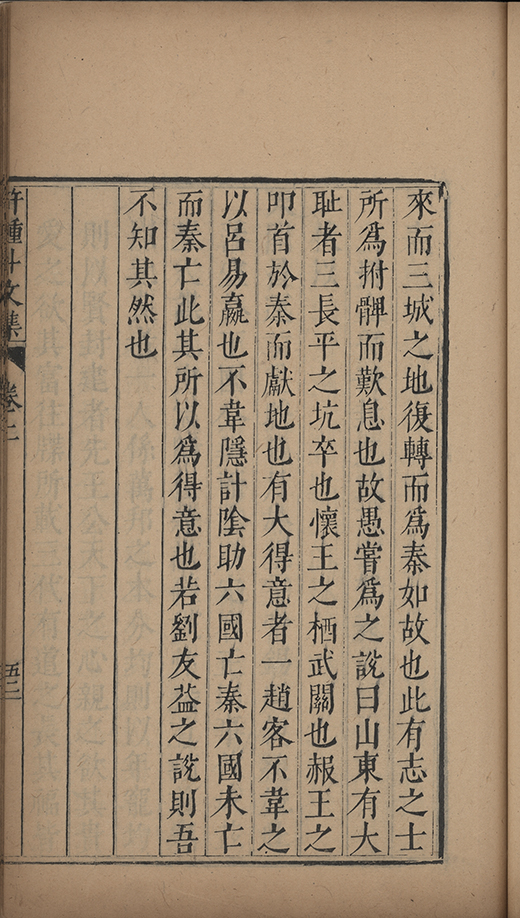 來而三城之地復轉而爲秦如故也此有志之士
所爲拊髀而歎息也故愚嘗爲之說曰山東有大
耻者三長平之坑卒也懷王之栖武關也赧王之
叩首於秦而獻地也有大得意者一趙客不韋之
以呂易嬴也不韋隱計陰助六國亡秦六國未亡
而秦亡此其所以爲得意也若劉友益之說則吾
不知其然也
許鍾斗文集
卷二
五二